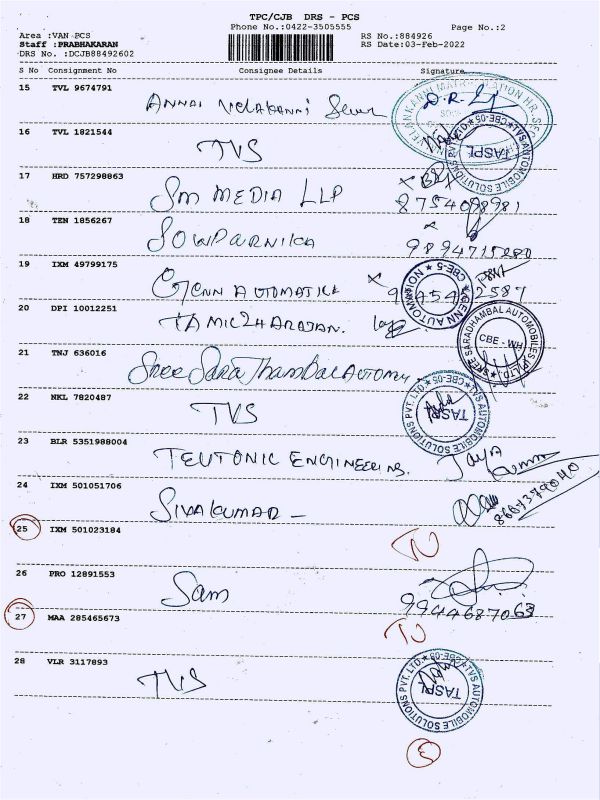 TPC/CJB DRS - PCS
Phone No.:0422-3505555
Page No.:2
Area :VAN-PCS
RS No.:884926
Staff :PRABHAKARAN
RS Date:03-Feb-2022
DRS No. :DCJB88492602
S No Consignment No Consignee Details Signature
15 TVL 9674791
ANNAI VELAKANNI
D.R.
16 TVL 1821544
TVS
TVS AUTOMOBILE SOLUTIONS PVT. LTD. CBE-05
TASPL
17 HRD 757298863
SM MEDIA LLP
8754098981
18 TEN 1856267
SOWPARNIKA
9894715280
19 IXM 49799175
GENN AUTOMATION
CBE-5
20 DPI 10012251
TAMIZHARAJAN.
21 TNJ 636016
SREE SARADHAMBAL AUTOMOBILES (P) LTD.
CBE - WH
Sree SaraThambal AUTOMO
22 NKL 7820487
TVS
TVS AUTOMOBILE SOLUTIONS PVT. LTD. CBE-05
TASPL
23 BLR 5351988004
TEUTONIC ENGINEERING.
Jaya
24 IXM 501051706
SIVAKUMAR -
25 IXM 501023184
26 PRO 12891553
Sam
9944687063
27 MAA 285465673
28 VLR 3117893
TVS
TVS AUTOMOBILE SOLUTIONS PVT. LTD. CBE-05
TASPL